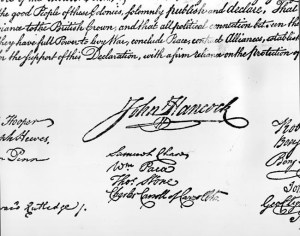 the good People of these Colonies, solemnly publish and declare, That
iance to the British Crown, and that all political connection between the
they have full Power to levy War, conclude Peace, contract Alliances, establish
for the support of this Declaration, with a firm reliance on the Protection of
John Hancock
Hooper
ph Hewes,
Penn
Samuel Chase
Wm. Paca
Thos. Stone
Charles Carroll of Carrollton
Rob
Benj
Benj
Geo